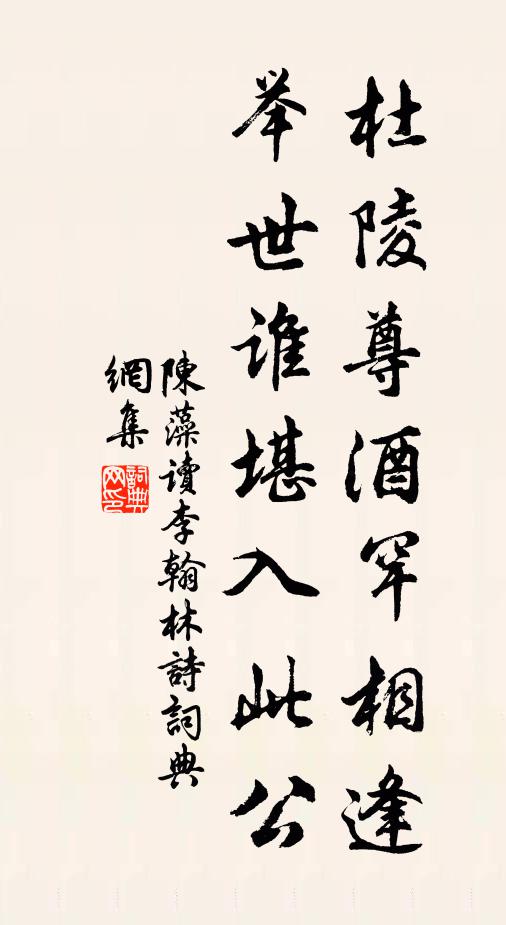 杜陵尊酒罕相逢
举世谁堪入此公
陳藻读李翰林詩詞典
網集
詞典網印